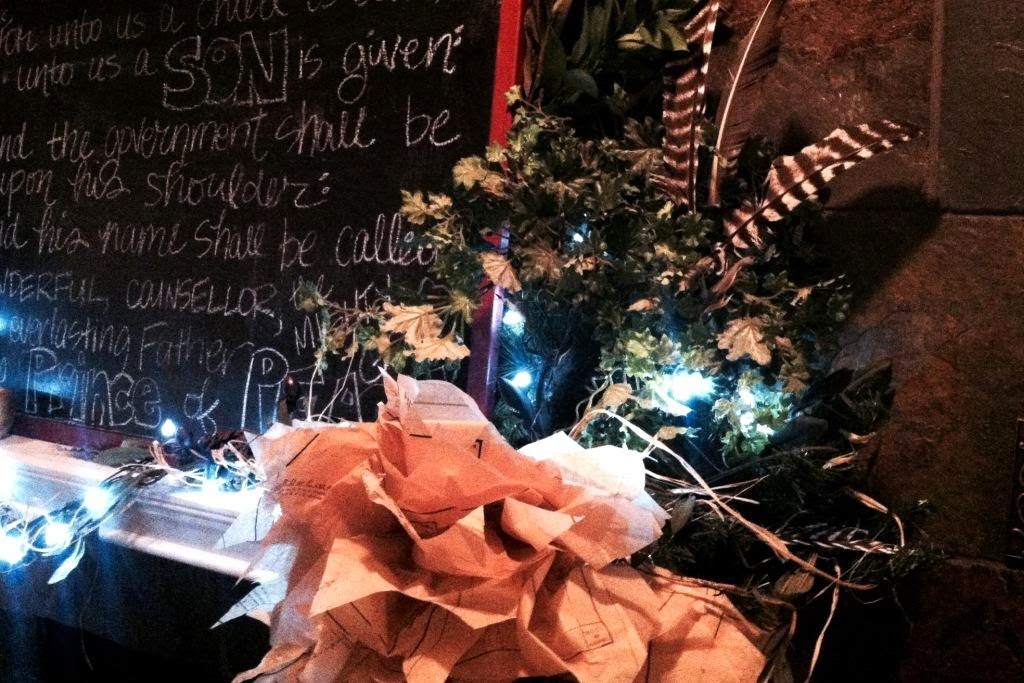 unto us a child
unto us a SON is given:
the government shall be
upon his shoulder:
his name shall be called
COUNSELLOR,
Everlasting Father
Prince of